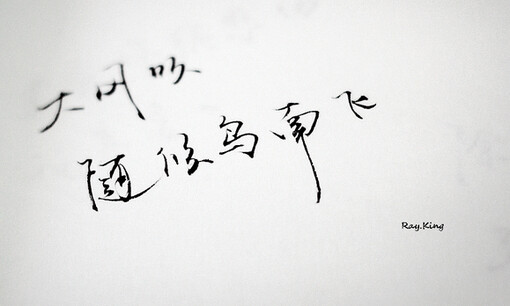 大风吹
随候鸟南飞
Ray.King